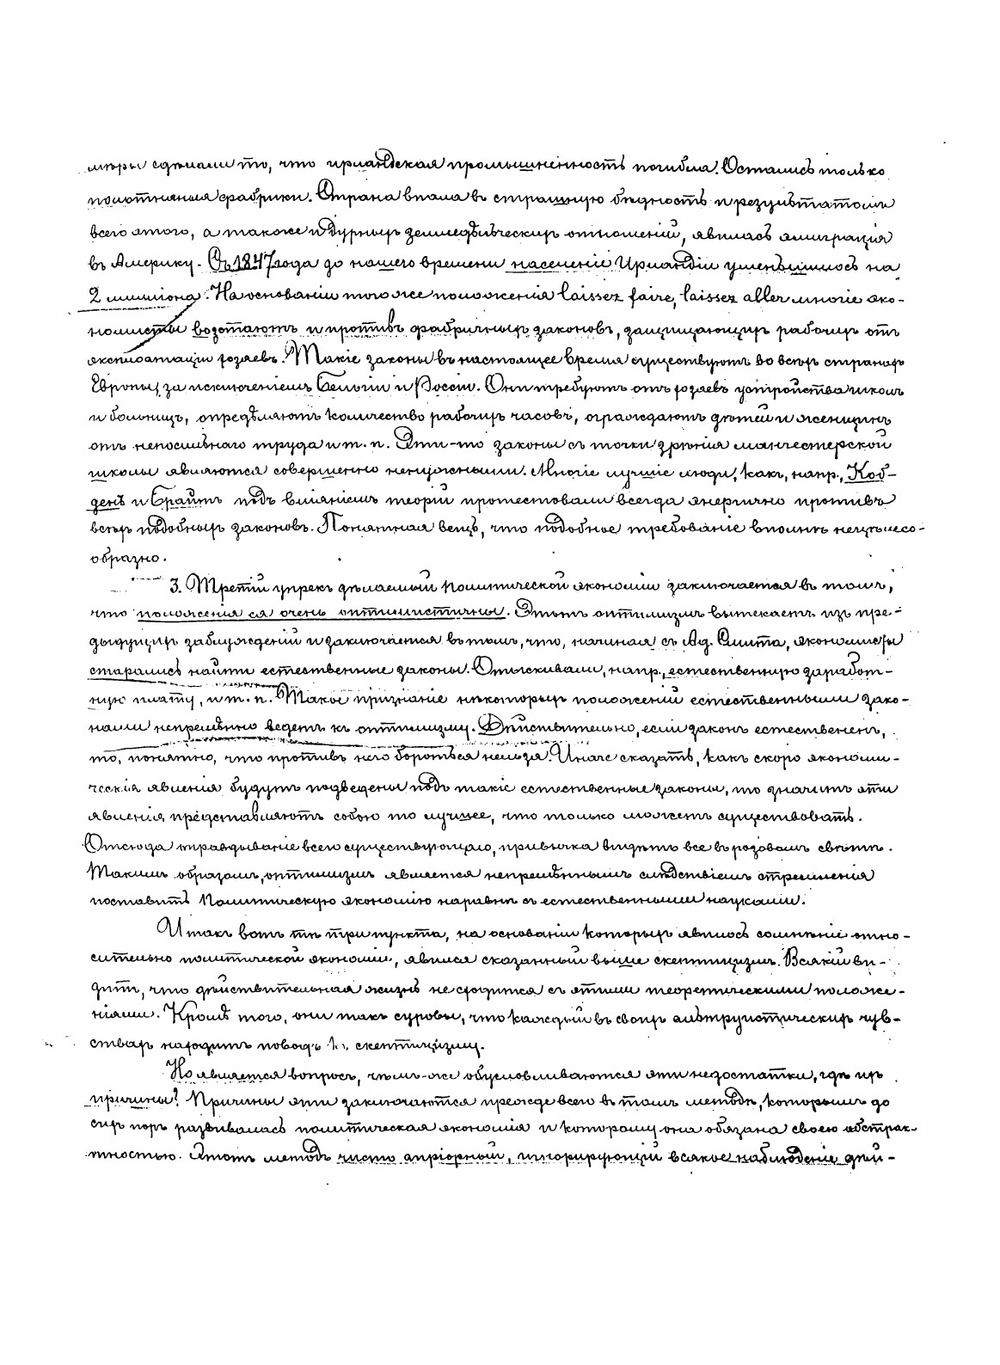 мѣры сдѣлали то, что ирландская промышленность погибла. Остались только
полотняныя фабрики. Страна впала въ страшную бѣдность и результатомъ
всего этого, а также и дурныхъ земледѣльческихъ отношеній, явилась эмиграція
въ Америку. Съ 1847 года до нашего времени населеніе Ирландіи уменьшилось на
2 милліона. На основаніи того же положенія laissez faire, laissez aller многіе эко-
номисты возстаютъ и противъ фабричныхъ законовъ, защищающихъ рабочихъ отъ
эксплоатаціи хозяевъ. Такіе законы въ настоящее время существуютъ во всѣхъ странахъ
Европы, за исключеніемъ Бельгіи и Россіи. Они требуютъ отъ хозяевъ устройства школъ
и больницъ, опредѣляютъ количество рабочихъ часовъ, ограждаютъ дѣтей и женщинъ
отъ непосильнаго труда и т. п. Эти-то законы съ точки зрѣнія манчестерской
школы являются совершенно ненужными. Многіе лучшіе люди, какъ, напр., Коб-
денъ и Брайтъ подъ вліяніемъ теоріи протестовали всегда энергично противъ
всѣхъ подобныхъ законовъ. Понятная вещь, что подобное требованіе вполнѣ нецѣлесо-
образно.
3. Третій упрекъ дѣлаемый Политической экономіи заключается въ томъ,
что положенія ея очень оптимистичны. Этотъ оптимизмъ вытекаетъ изъ пре-
дыдущихъ заблужденій и заключается въ томъ, что, начиная съ Ад. Смита, экономисты
старались найти естественные законы. Отыскивали, напр., естественную заработ-
ную плату, и т. п. Такое признаніе нѣкоторыхъ положеній естественными зако-
нами непремѣнно ведетъ къ оптимизму. Дѣйствительно, если законъ естественъ,
то, понятно, что противъ него бороться нельзя. Иначе сказать, какъ скоро экономи-
ческія явленія будутъ подведены подъ такіе естественные законы, то значитъ эти
явленія представляютъ собою то лучшее, что только можетъ существовать.
Отсюда оправдываніе всего существующаго, привычка видѣть все въ розовомъ свѣтѣ.
Такимъ образомъ, оптимизмъ является непремѣннымъ слѣдствіемъ стремленія
поставить Политическую экономію наравнѣ съ естественными науками.
Итакъ вотъ тѣ три пункта, на основаніи которыхъ явилось сомнѣніе отно-
сительно политической экономіи, явился сказанный выше скептицизмъ. Всякій ви-
дитъ, что дѣйствительная жизнь не сходится съ этими теоретическими положе-
ніями. Кромѣ того, они такъ суровы, что каждый въ своихъ альтруистическихъ чув-
ствахъ находитъ поводъ къ скептицизму.
Но является вопросъ, чѣмъ-же обусловливаются эти недостатки, гдѣ ихъ
причины? Причины эти заключаются прежде всего въ томъ методѣ, которымъ до
сихъ поръ развивалась политическая экономія и которому она обязана своею абстрак-
тностью. Этотъ методъ чисто апріорный, игнорирующій всякое наблюденіе дѣй-